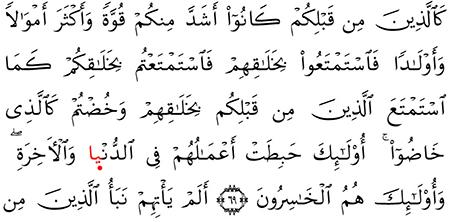 كَٱلَّذِينَ مِن قَبْلِكُمْ كَانُوٓا۟ أَشَدَّ مِنكُمْ قُوَّةً وَأَكْثَرَ أَمْوَٰلًا
وَأَوْلَـٰدًا فَٱسْتَمْتَعُوا۟ بِخَلَـٰقِهِمْ فَٱسْتَمْتَعْتُم بِخَلَـٰقِكُمْ كَمَا
ٱسْتَمْتَعَ ٱلَّذِينَ مِن قَبْلِكُم بِخَلَـٰقِهِمْ وَخُضْتُمْ كَٱلَّذِى
خَاضُوٓا۟ ۚ أُو۟لَـٰٓئِكَ حَبِطَتْ أَعْمَـٰلُهُمْ فِى ٱلدُّنْيَا وَٱلْـَٔاخِرَةِ ۖ
وَأُو۟لَـٰٓئِكَ هُمُ ٱلْخَـٰسِرُونَ ﴿٦٩﴾ أَلَمْ يَأْتِهِمْ نَبَأُ ٱلَّذِينَ مِن